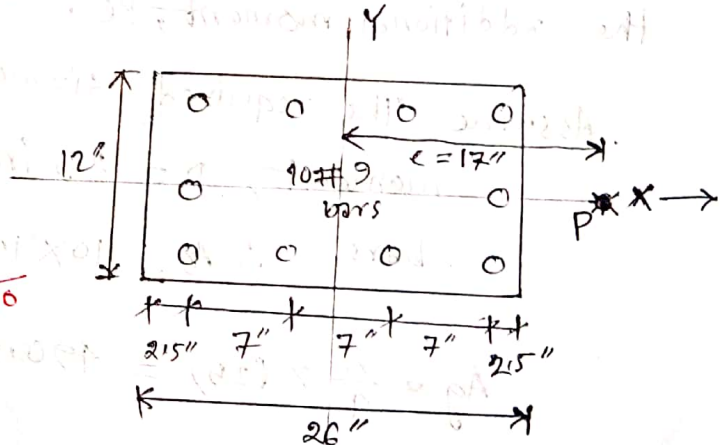 Y
12"
e = 17"
10# 9
bars
P
X
2.5" 7" 7" 7" 2.5"
26"